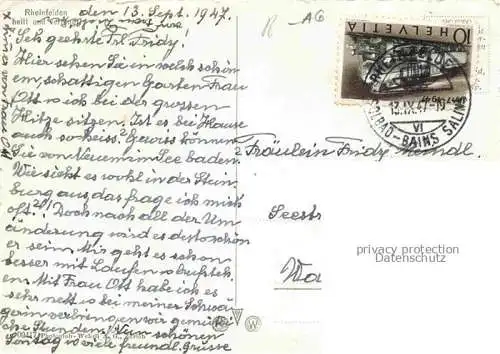 Rheinfelden
heilt und
den 13. Sept. 1947.
Sehr geehrte Frl. Fridy!
Hier sehen Sie in welch schön
em, schattigen Garten Frau
Ott u. ich bei der grossen
Hitze sitzen. Ist es bei Ihnen
auch so heiss? Gewiss können
Sie von Neuem im See baden.
Wie sieht es wohl in der Stein
burg aus das frage ich mich
oft? Doch nach all der Um
änderung wird es desto schön
er sein. Mir geht es schon
besser mit Laufen
em. Mit Frau Ott habe ich es
sehr nett u. bei meiner Schwä
gerin verbringen wir gemütli
che Stunden! Nun schönen
Sonntag u. viele freundl. Grüsse
HELVETIA
10
RHEINFELDEN
13.IX.47.-19
VI
SOLBAD-BAINS SALINS
Fräulein Fridy
Seestr
Wa
privacy protection
Datenschutz